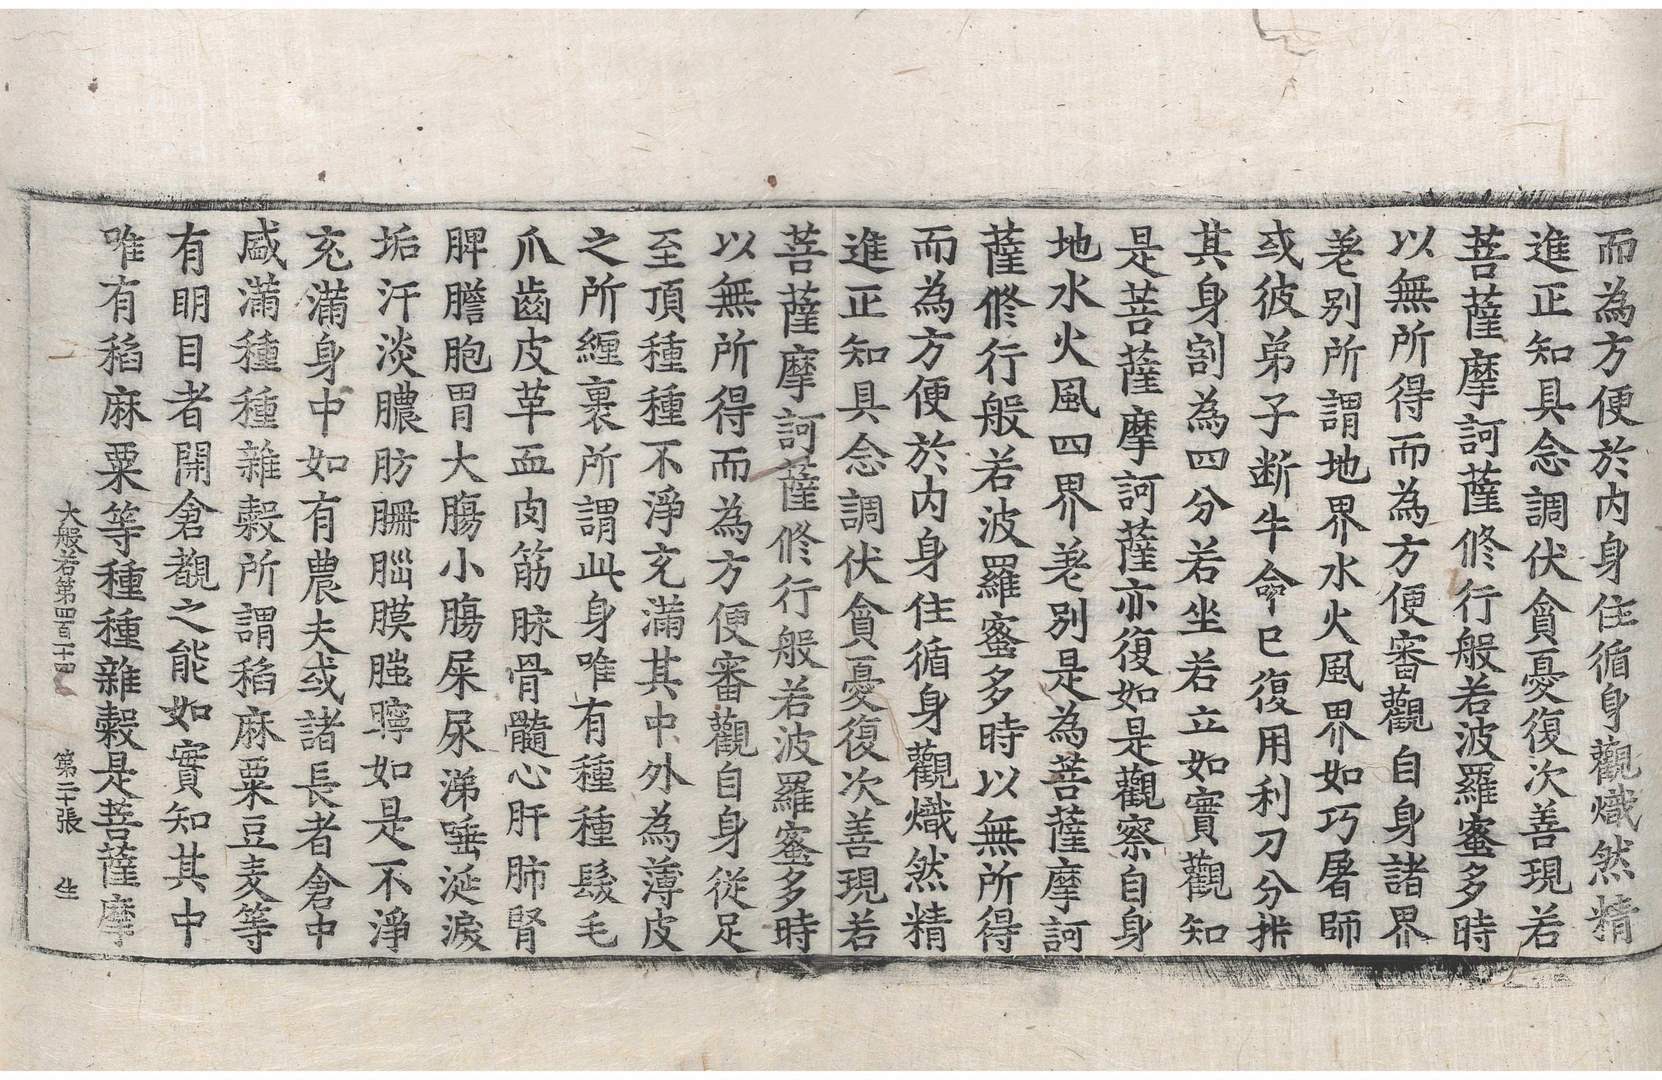 而為方便於内身住循身觀熾然精
進正知具念調伏貪憂復次善現若
菩薩摩訶薩修行般若波羅蜜多時
以無所得而為方便審觀自身諸界
差別所謂地界水火風界如巧屠師
或彼弟子断牛命已復用利刀分拆
其身割為四分若坐若立如實觀知
是菩薩摩訶薩亦復如是觀察自身
地水火風四界差別是為菩薩摩訶
薩修行般若波羅蜜多時以無所得
而為方便於内身住循身觀熾然精
進正知具念調伏貪憂復次善現若
菩薩摩訶薩修行般若波羅蜜多時
以無所得而為方便審觀自身從足
至頂種種不淨充滿其中外為薄皮
之所纏裹所謂此身唯有種種髮毛
爪齒皮革血肉筋脉骨髓心肝肺腎
脾膽胞胃大腸小腸屎尿涕唾涎淚
垢汗淡膿肪𦙱腦膜𦛁聹如是不淨
充滿身中如有農夫或諸長者倉中
盛滿種種雜穀所謂稻麻粟豆麦等
有明目者開倉覩之能如實知其中
唯有稻麻粟等種種雜穀是菩薩摩
大般若第四百一十四 第二十張 生